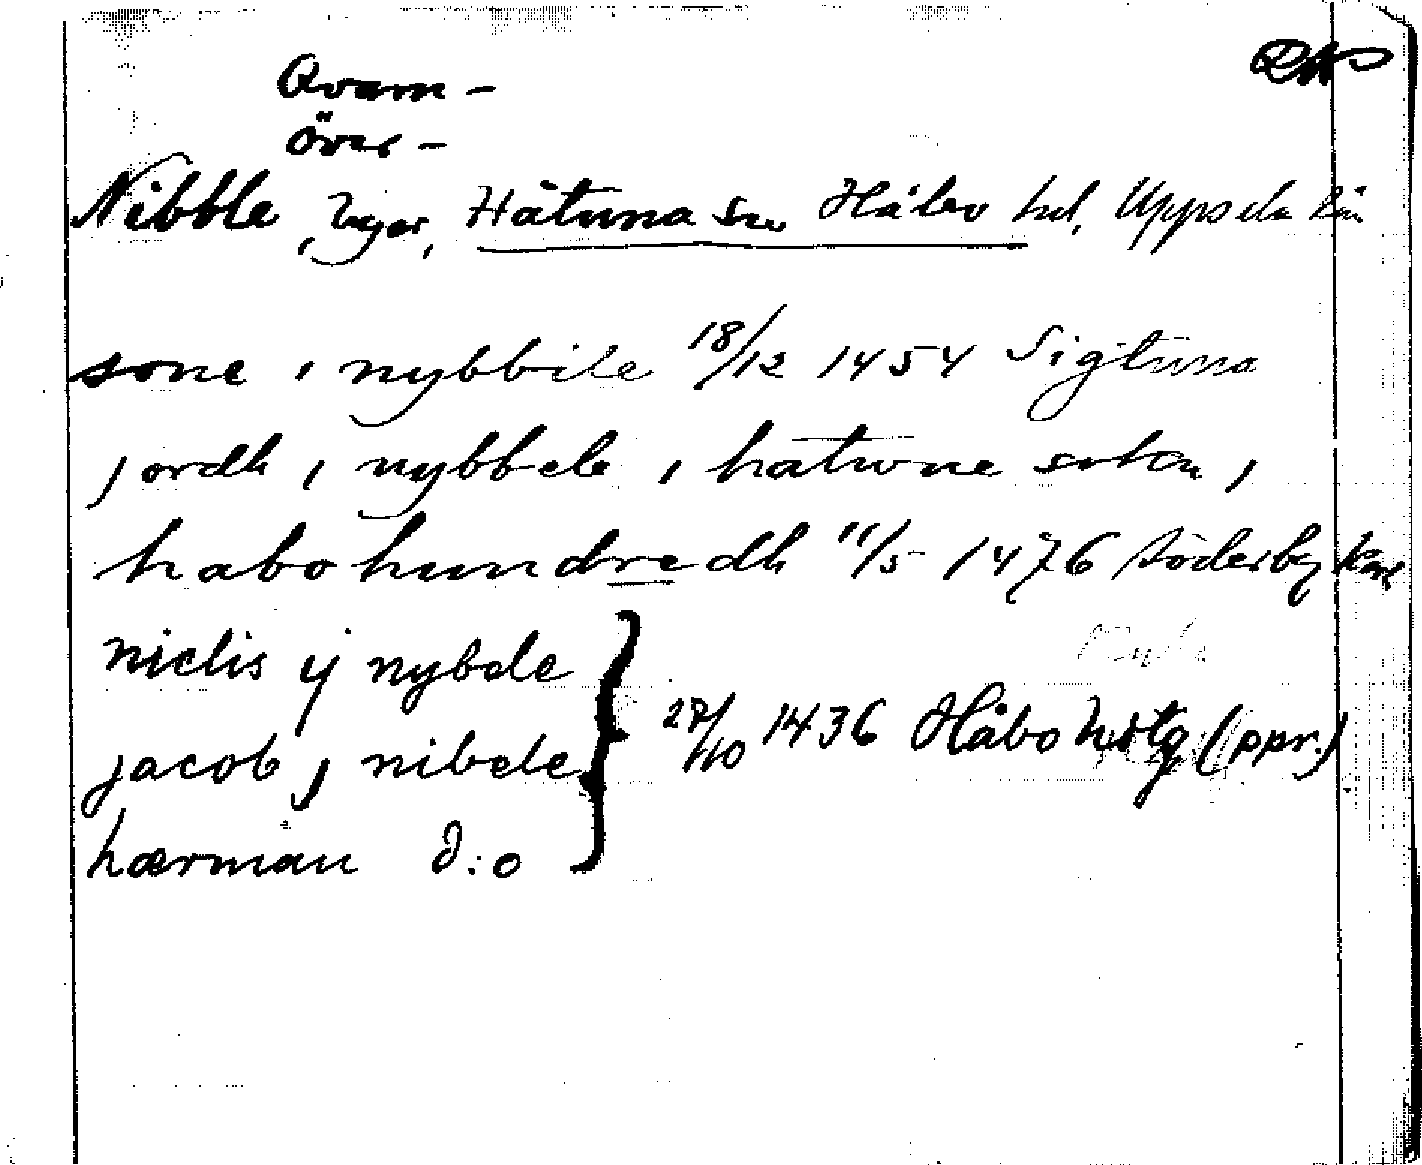 Qvarn-
Över-
Nibble, byar, Håtuna sn Håbo hd, Uppsala län
sone i nybbile 18/12 1454 Sigtuna
jordh i nybbele i hatwne sokn j
habohundredh 11/5 1476 Söderby
niclis ij nybele
jacob j nibele } 27/10 1436 Håbo hdtg (ppr.)
hærman d:o